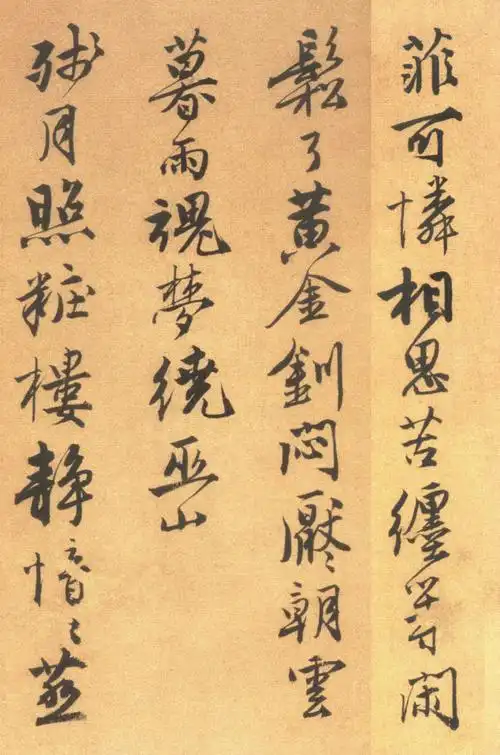 菲可憐相思苦纏等閑
鬆了黃金釧悶厭〻朝雲
暮雨魂夢繞巫山
殘月照粧樓靜愔〻燕